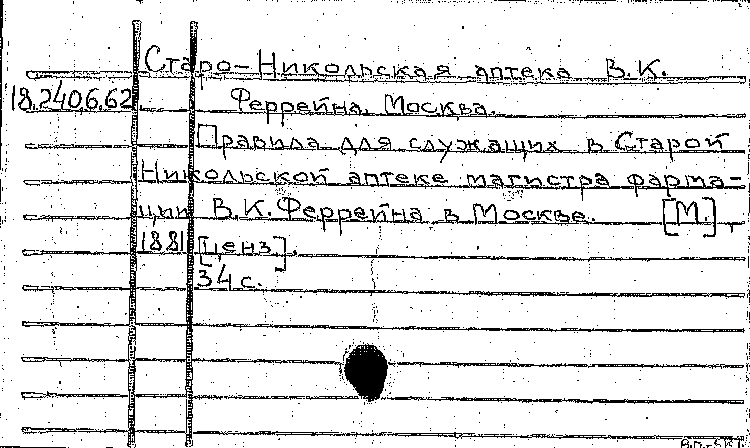 Старо-Никольская аптека В.К.
18.240б.62. Феррейна, Москва.
Правила для служащих в Старой
Никольской аптеке магистра фарма-
ции В.К. Феррейна в Москве. [М.],
1881 [ценз].
34 с.